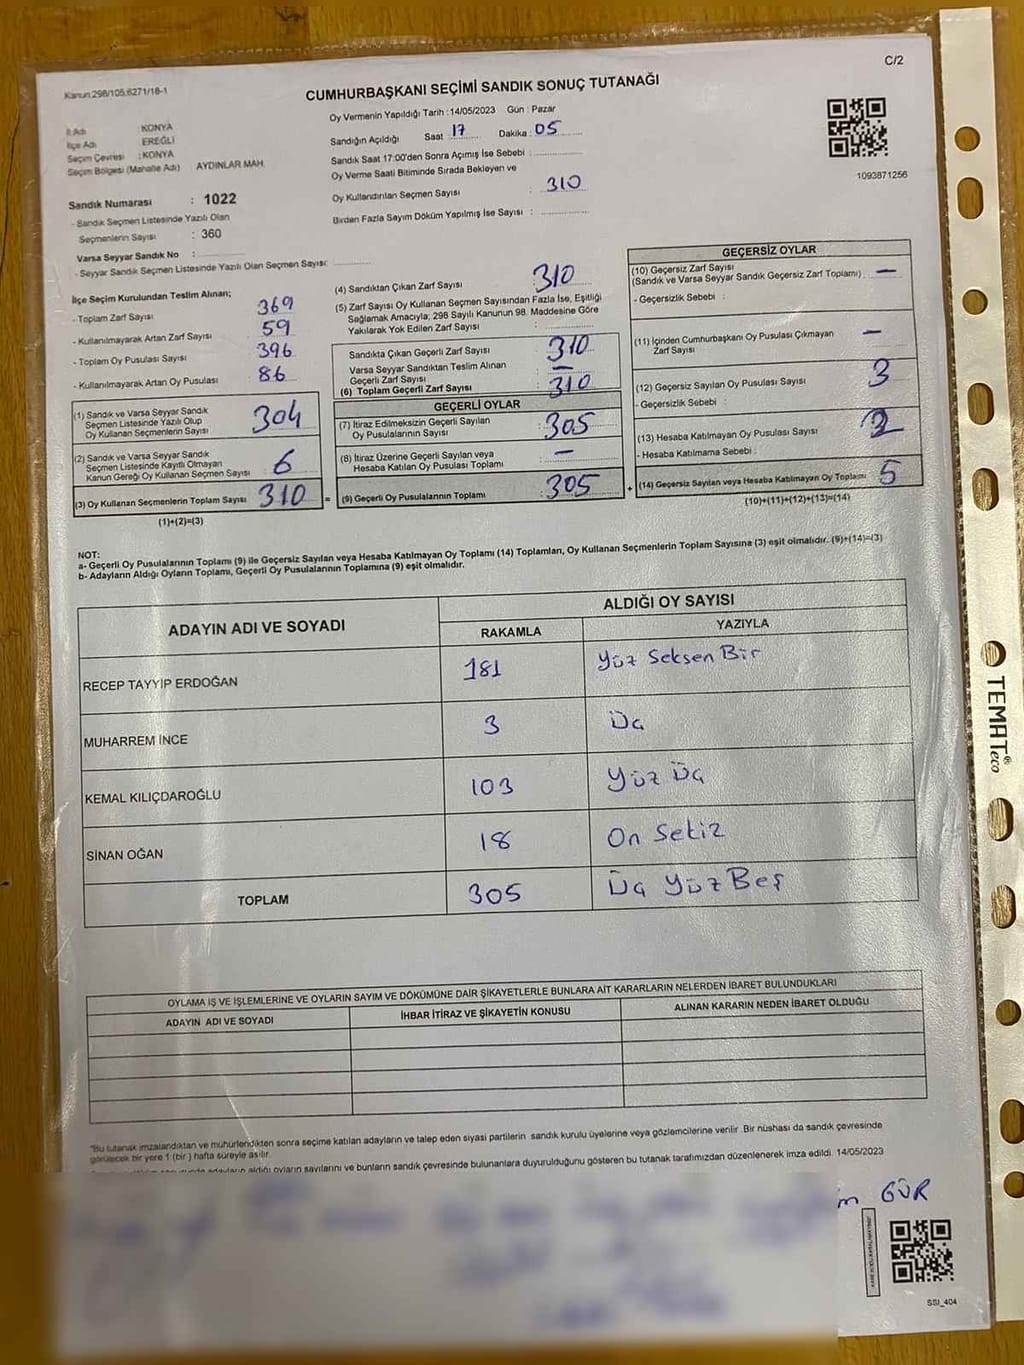 C/2
Kanun 298/105,6271/18-1
CUMHURBAŞKANI SEÇİMİ SANDIK SONUÇ TUTANAĞI
İl Adı : KONYA
İlçe Adı : EREĞLİ
Seçim Çevresi : KONYA
Seçim Bölgesi (Mahalle Adı) AYDINLAR MAH.
Sandık Numarası : 1022
- Sandık Seçmen Listesinde Yazılı Olan
Seçmenlerin Sayısı : 360
Varsa Seyyar Sandık No :
- Seyyar Sandık Seçmen Listesinde Yazılı Olan Seçmen Sayısı:
Oy Vermenin Yapıldığı Tarih : 14/05/2023 Gün : Pazar
Sandığın Açıldığı Saat 17 Dakika : 05
Sandık Saat 17:00'den Sonra Açımış İse Sebebi :
Oy Verme Saati Bitiminde Sırada Bekleyen ve
Oy Kullandırılan Seçmen Sayısı : 310
Birden Fazla Sayım Döküm Yapılmış İse Sayısı :
1093871256
İlçe Seçim Kurulundan Teslim Alınan;
- Toplam Zarf Sayısı 369
- Kullanılmayarak Artan Zarf Sayısı 59
- Toplam Oy Pusulası Sayısı 396
- Kullanılmayarak Artan Oy Pusulası 86
(1) Sandık ve Varsa Seyyar Sandık
Seçmen Listesinde Yazılı Olup
Oy Kullanan Seçmenlerin Sayısı 304
(2) Sandık ve Varsa Seyyar Sandık
Seçmen Listesinde Kayıtlı Olmayan
Kanun Gereği Oy Kullanan Seçmen Sayısı 6
(3) Oy Kullanan Seçmenlerin Toplam Sayısı 310
(1)+(2)=(3)
=
(4) Sandıktan Çıkan Zarf Sayısı 310
(5) Zarf Sayısı Oy Kullanan Seçmen Sayısından Fazla İse, Eşitliği
Sağlamak Amacıyla; 298 Sayılı Kanunun 98. Maddesine Göre
Yakılarak Yok Edilen Zarf Sayısı :
Sandıkta Çıkan Geçerli Zarf Sayısı : 310
Varsa Seyyar Sandıktan Teslim Alınan
Geçerli Zarf Sayısı : —
(6) Toplam Geçerli Zarf Sayısı : 310
GEÇERLİ OYLAR
(7) İtiraz Edilmeksizin Geçerli Sayılan
Oy Pusulalarının Sayısı : 305
(8) İtiraz Üzerine Geçerli Sayılan veya
Hesaba Katılan Oy Pusulası Toplamı : —
(9) Geçerli Oy Pusulalarının Toplamı : 305
+
GEÇERSİZ OYLAR
(10) Geçersiz Zarf Sayısı
(Sandık ve Varsa Seyyar Sandık Geçersiz Zarf Toplamı) : —
- Geçersizlik Sebebi :
(11) İçinden Cumhurbaşkanı Oy Pusulası Çıkmayan
Zarf Sayısı : —
(12) Geçersiz Sayılan Oy Pusulası Sayısı : 3
- Geçersizlik Sebebi :
(13) Hesaba Katılmayan Oy Pusulası Sayısı : 2
- Hesaba Katılmama Sebebi :
(14) Geçersiz Sayılan veya Hesaba Katılmayan Oy Toplamı : 5
(10)+(11)+(12)+(13)=(14)
NOT:
a- Geçerli Oy Pusulalarının Toplamı (9) ile Geçersiz Sayılan veya Hesaba Katılmayan Oy Toplamı (14) Toplamları, Oy Kullanan Seçmenlerin Toplam Sayısına (3) eşit olmalıdır. (9)+(14)=(3)
b- Adayların Aldığı Oyların Toplamı, Geçerli Oy Pusulalarının Toplamına (9) eşit olmalıdır.
ADAYIN ADI VE SOYADI ALDIĞI OY SAYISI
RAKAMLA YAZIYLA
RECEP TAYYİP ERDOĞAN 181 Yüz Seksen Bir
MUHARREM İNCE 3 Üç
KEMAL KILIÇDAROĞLU 103 Yüz Üç
SİNAN OĞAN 18 On Sekiz
TOPLAM 305 Üç Yüz Beş
OYLAMA İŞ VE İŞLEMLERİNE VE OYLARIN SAYIM VE DÖKÜMÜNE DAİR ŞİKAYETLERLE BUNLARA AİT KARARLARIN NELERDEN İBARET BULUNDUKLARI
ADAYIN ADI VE SOYADI İHBAR İTİRAZ VE ŞİKAYETİN KONUSU ALINAN KARARIN NEDEN İBARET OLDUĞU
"Bu tutanak imzalandıktan ve mühürlendikten sonra seçime katılan adayların ve talep eden siyasi partilerin sandık kurulu üyelerine veya gözlemcilerine verilir. Bir nüshası da sandık çevresinde
görülecek bir yere 1 (bir) hafta süreyle asılır.
adayların aldığı oyların sayılarını ve bunların sandık çevresinde bulunanlara duyurulduğunu gösteren bu tutanak tarafımızdan düzenlenerek imza edildi. 14/05/2023
GÜR
SSI_404
TEMATeco®